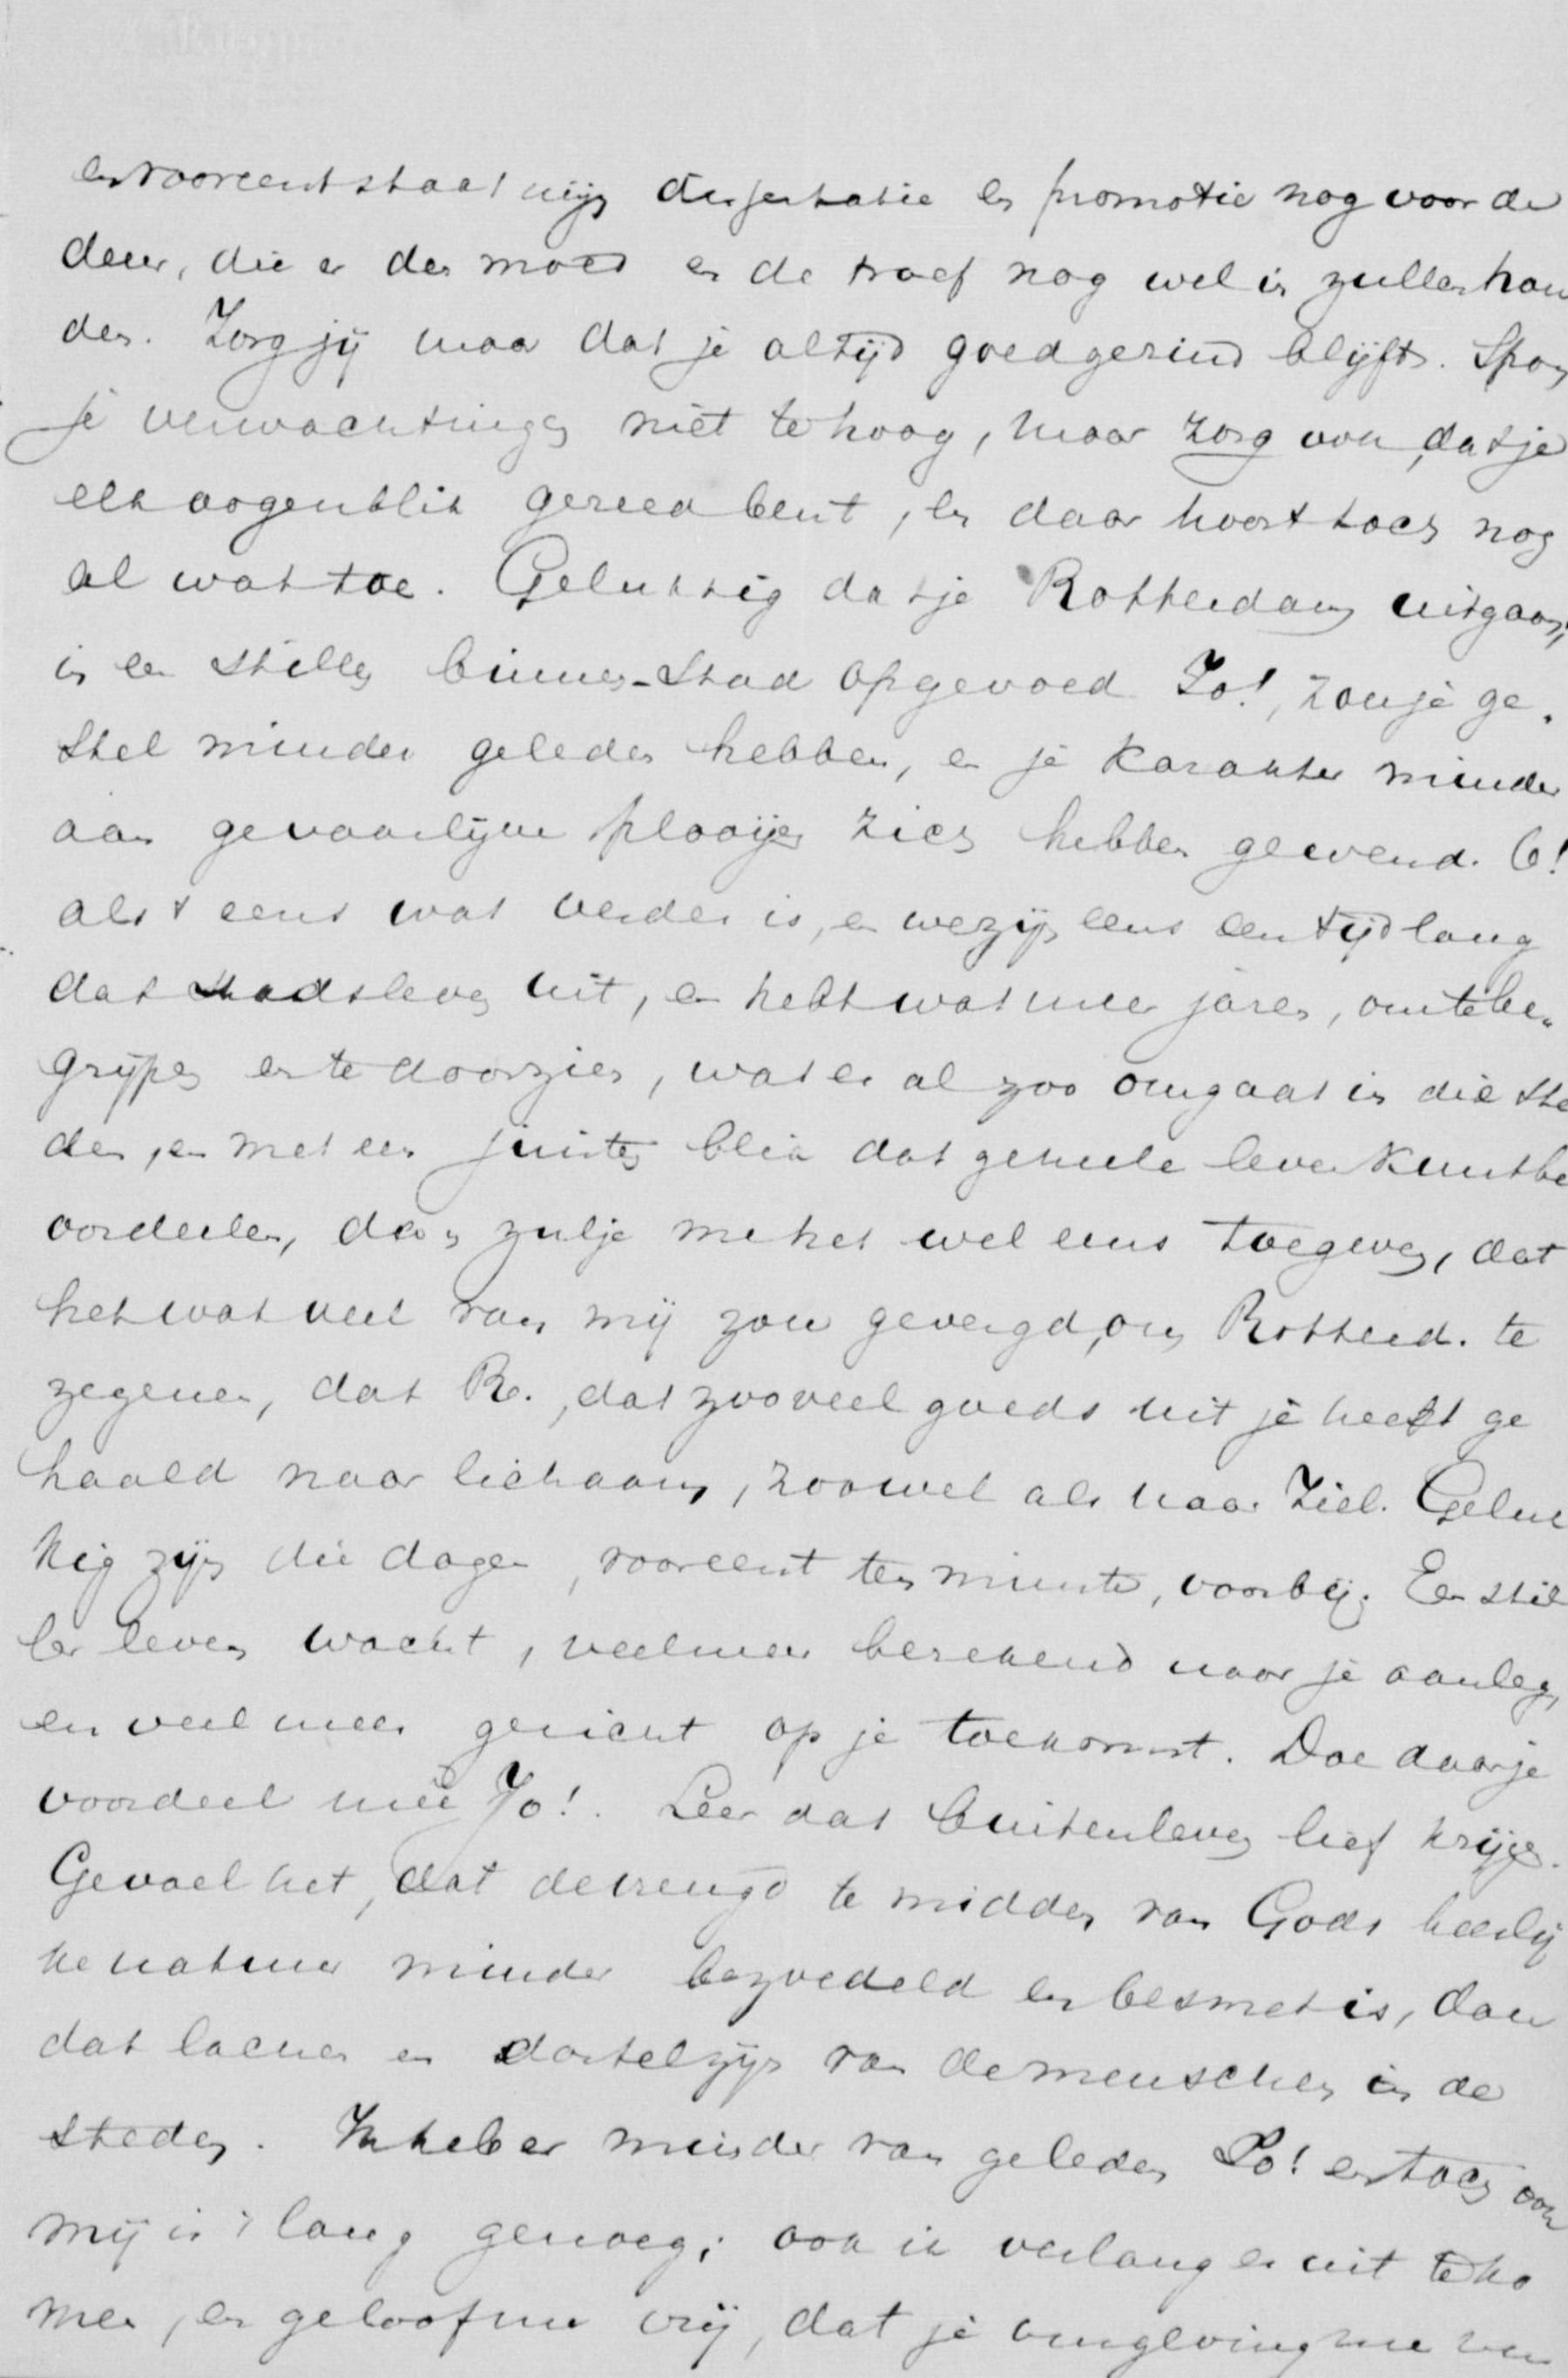 en vooreerst staat mijn dissertatie en promotie nog voor de
deur, die er den moed en de troef nog wel in zullen hou
den. Zorg jij maar dat je altijd goedgezind blijft. Span
je verwachtingen niet te hoog, maar zorg ook, dat je
elk oogenblik gereed bent, en daar hoort toch nog
al wat toe. Gelukkig dat je Rotterdam uitgaat,
in een stille binnen-stad opgevoed Jo!, zou je ge-
stel minder geleden hebben, en je karakter minder
aan gevaarlijke plooijen zich hebben gewend. O!
als 't eens wat verder is, en we zijn eens een tijd lang
dat stadsleven uit, en hebt wat meer jaren, om te be-
grijpen en te doorzien, wat er al zoo omgaat in die ste
den, en met een juisten blik dat geheele leven kunt be
oordeelen, dan zulje me het wel eens toegeven, dat
het wat veel van mij zou gevergd, om Rotterd. te
zegenen, dat R., dat zooveel goeds uit je heeft ge
haald naar lichaam, zoowel als naar Ziel. Geluk
kig zijn die dagen, vooreerst ten minste, voorbij. Een stil
ler leven wacht, veel meer berekend naar je aanleg,
en veel meer gericht op je toekomst. Doe daar je
voordeel meê Jo!. Leer dat buitenleven lief krijgen.
Gevoel het, dat de vreugd te midden van Gods heerlij
ke natuur minder bezoedeld en besmet is, dan
dat lachen en dartelzijn van de menschen in de
steden. Ik heb er minder van geleden Jo! en toch ook
mij is 't lang genoeg; ook ik verlang er uit te ko
men, en geloof me vrij, dat je omgeving me